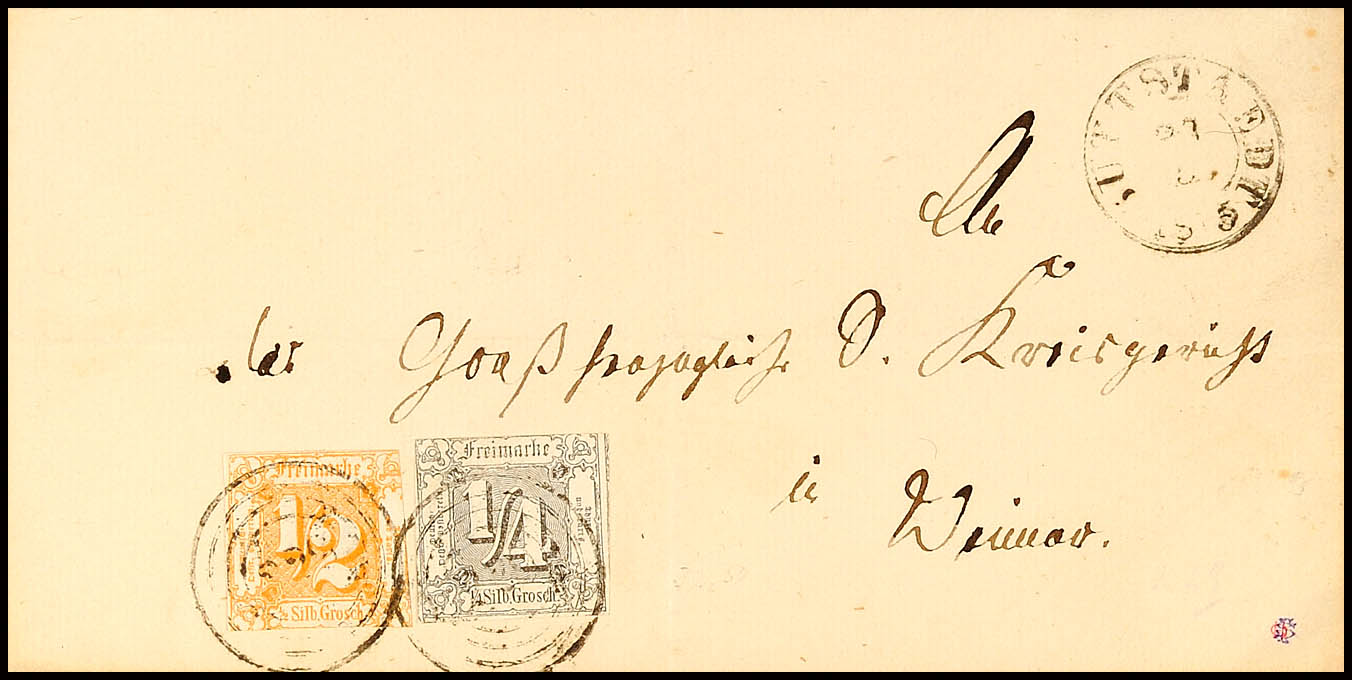 BUTTSTAEDT
An
das Großherzogliche S. Kreisgericht
in
Weimar.
Freimarke
1/2
½ Silb. Grosch.
Freimarke
1/4
¼ Silb. Grosch.